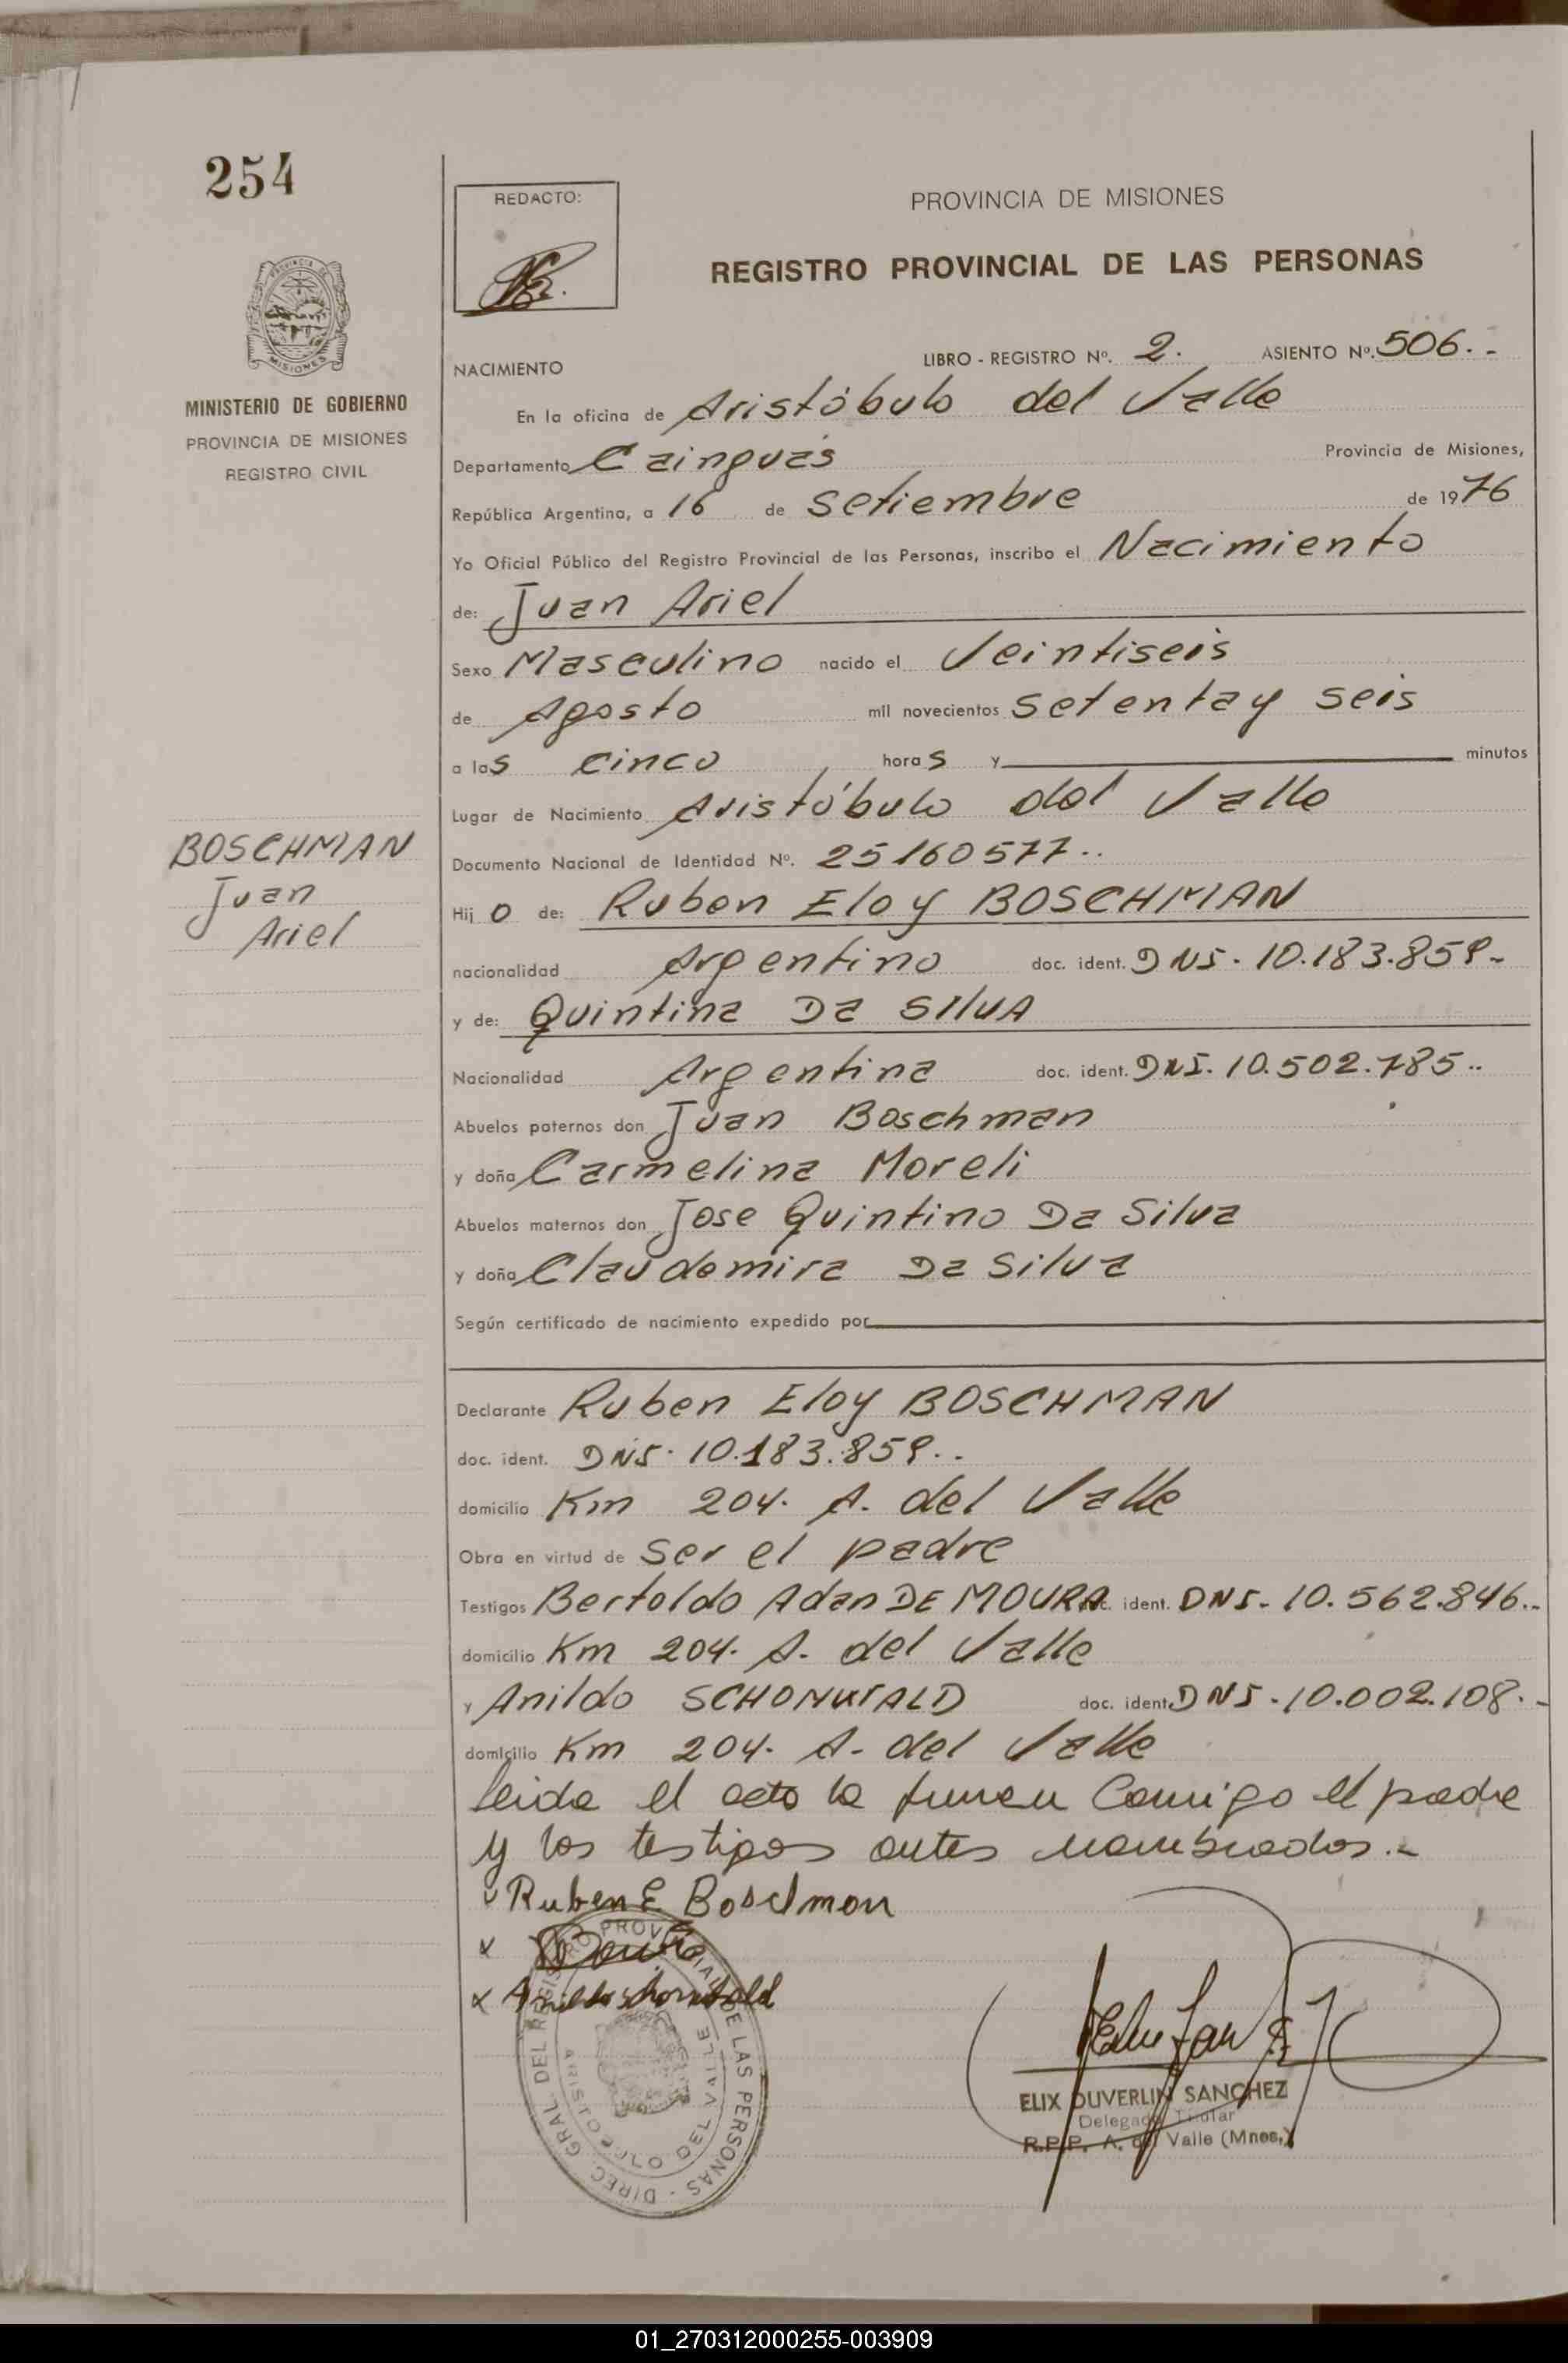 254
REDACTO:
PROVINCIA DE MISIONES
REGISTRO PROVINCIAL DE LAS PERSONAS
MISIONES
MINISTERIO DE GOBIERNO
PROVINCIA DE MISIONES
REGISTRO CIVIL
NACIMIENTO LIBRO - REGISTRO Nº. 2. ASIENTO Nº. 506.-
En la oficina de Aristóbulo del Valle
Departamento Cainguás Provincia de Misiones,
República Argentina, a 16 de Setiembre de 1976
Yo Oficial Público del Registro Provincial de las Personas, inscribo el Nacimiento
de: Juan Ariel
Sexo Masculino nacido el Veintiseis
de Agosto mil novecientos setentay seis
a las cinco horas y minutos
Lugar de Nacimiento Aristóbulo del Valle
BOSCHMAN
Juan
Ariel
Documento Nacional de Identidad Nº. 25160577..
Hijo de: Ruben Eloy BOSCHMAN
nacionalidad Argentino doc. ident. DNI. 10.183.859-
y de: Quintina Da SilvA
Nacionalidad Argentina doc. ident. DNI. 10.502.785..
Abuelos paternos don Juan Boschman
y doña Carmelina Moreli
Abuelos maternos don Jose Quintino Da Silva
y doña Claudemira Da Silva
Según certificado de nacimiento expedido por
Declarante Ruben Eloy BOSCHMAN
doc. ident. DNI. 10.183.859..
domicilio Km 204. A. del Valle
Obra en virtud de ser el padre
Testigos Bertoldo Adan DE MOURA doc. ident. DNI- 10.562.846..
domicilio Km 204. A. del Valle
y Anildo SCHONWALD doc. ident. DNI-10.002.108.-
domicilio Km 204. A- del Valle
leida el acto la firman Comigo el padre
y los testigos antes nombrados.-
x Ruben E Boschman
x
x Anildo Schonwald
DIREC. GRAL. DEL REGISTRO PROVINCIAL DE LAS PERSONAS
ARISTOBULO DEL VALLE
ELIX DUVERLIN SANCHEZ
Delegado Titular
R.P.P. A. del Valle (Mnes.)
01_270312000255-003909